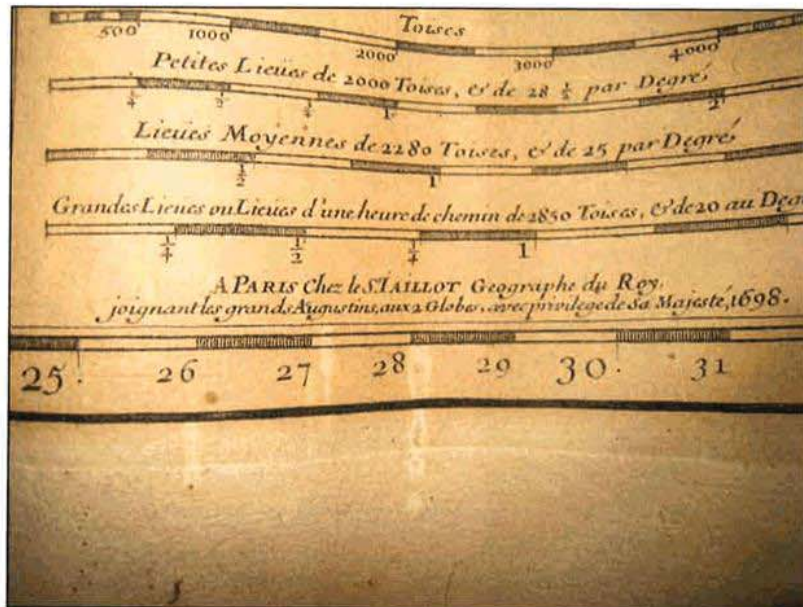 Toises
500 1000 2000 3000 4000
Petites Lieües de 2000 Toises, & de 28 1/2 par Degré
1/4 1/2 1/4 1 2
Lieües Moyennes de 2280 Toises, & de 25 par Degré
1/2 1
Grandes Lieues ou Lieües d'une heure de chemin de 2850 Toises, & de 20 au Deg
1/4 1/2 1/4 1
A PARIS Chez le Sr. IAILLOT Geographe du Roy,
joignant les grands Augustins, aux 2 Globes, avec privilege de Sa Majesté, 1698.
25. 26 27 28 29 30. 31